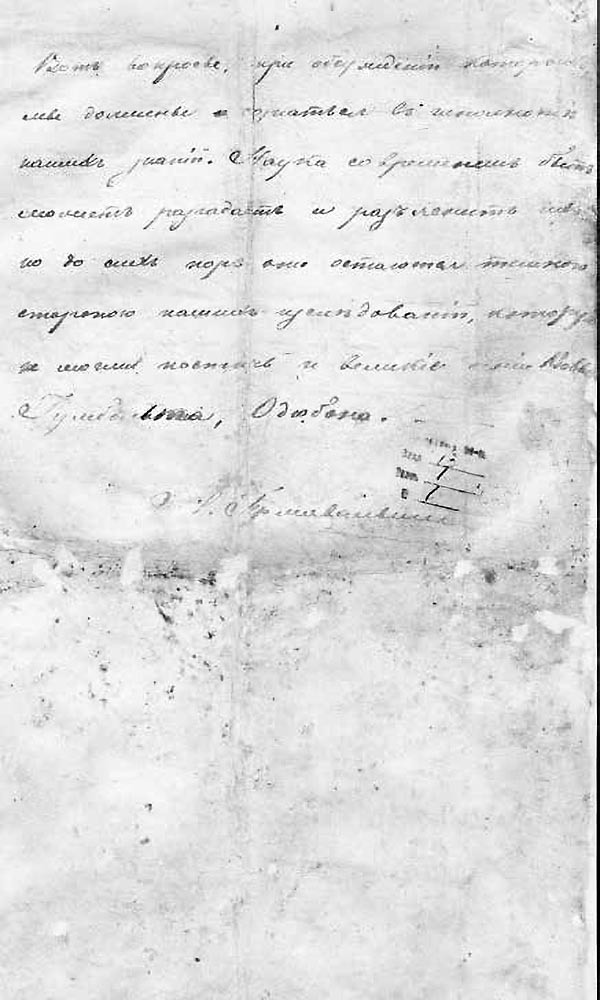 Вотъ вопросы, при обсужденіи которыхъ
мы должны сознаться въ неполнотѣ
нашихъ знаній. Наука современемъ быть
можетъ разгадаетъ и разъяснитъ ихъ,
но до сихъ поръ они остаются темною
стороною нашихъ изслѣдованій, которую
не могли постичь и великіе
Гумбольдта, Одюбона.